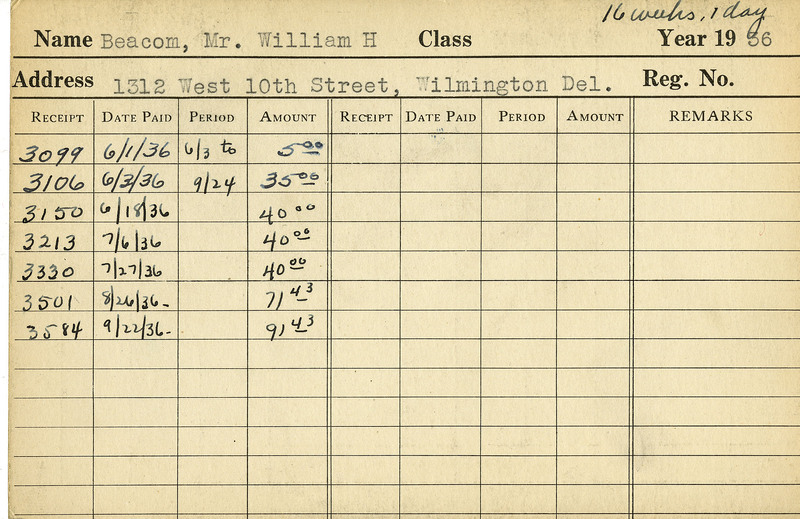 16 weeks, 1 day
Name Beacom, Mr. William H Class Year 19 36
Address 1312 West 10th Street, Wilmington Del. Reg. No.
RECEIPT DATE PAID PERIOD AMOUNT RECEIPT DATE PAID PERIOD AMOUNT REMARKS
3099 6/1/36 6/3 to 5.00
3106 6/3/36 9/24 35.00
3150 6/18/36 40 00
3213 7/6/36 40 00
3330 7/27/36 40 00
3501 8/26/36- 71 43
3584 9/22/36- 91 43